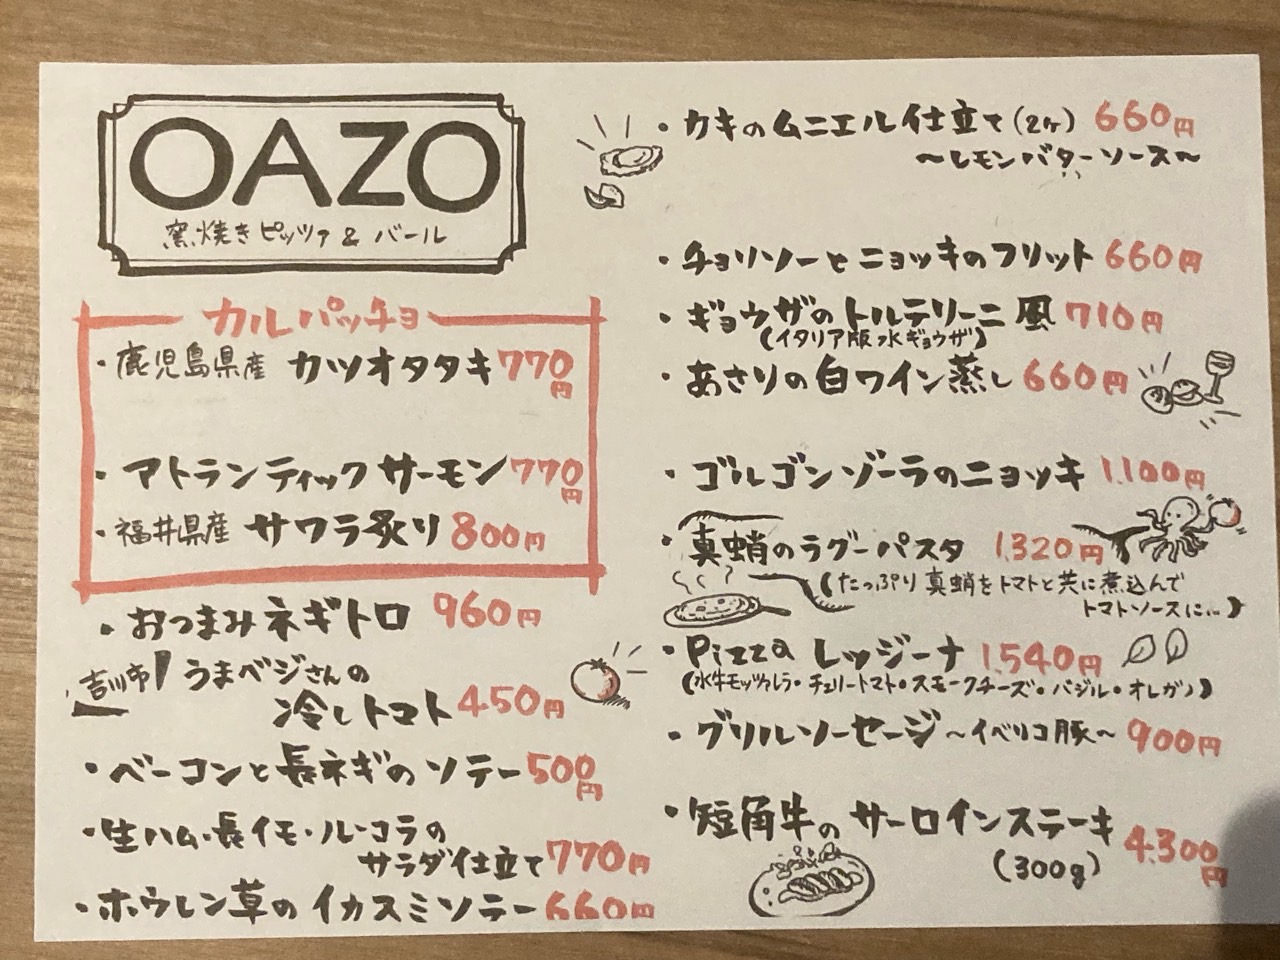 OAZO
窯焼きピッツァ & バール
カルパッチョ
・鹿児島県産 カツオタタキ 770円
・アトランティックサーモン 770円
・福井県産 サワラ炙り 800円
・おつまみネギトロ 960円
吉川市 うまベジさんの
冷しトマト 450円
・ベーコンと長ネギのソテー 500円
・生ハム・長イモ・ルッコラの
サラダ仕立て 770円
・ホウレン草のイカスミソテー 660円
・カキのムニエル仕立て(2ヶ) 660円
〜レモンバターソース〜
・チョリソーとニョッキのフリット 660円
・ギョウザのトルテリーニ風 710円
(イタリア版 水ギョウザ)
・あさりの白ワイン蒸し 660円
・ゴルゴンゾーラのニョッキ 1.100円
・真蛸のラグーパスタ 1.320円
(たっぷり真蛸をトマトと共に煮込んで
トマトソースに...)
・Pizza レッジーナ 1.540円
(水牛モッツァレラ・チェリートマト・スモークチーズ・バジル・オレガノ)
・グリルソーセージ 〜イベリコ豚〜 900円
・短角牛のサーロインステーキ 4.300円
(300g)